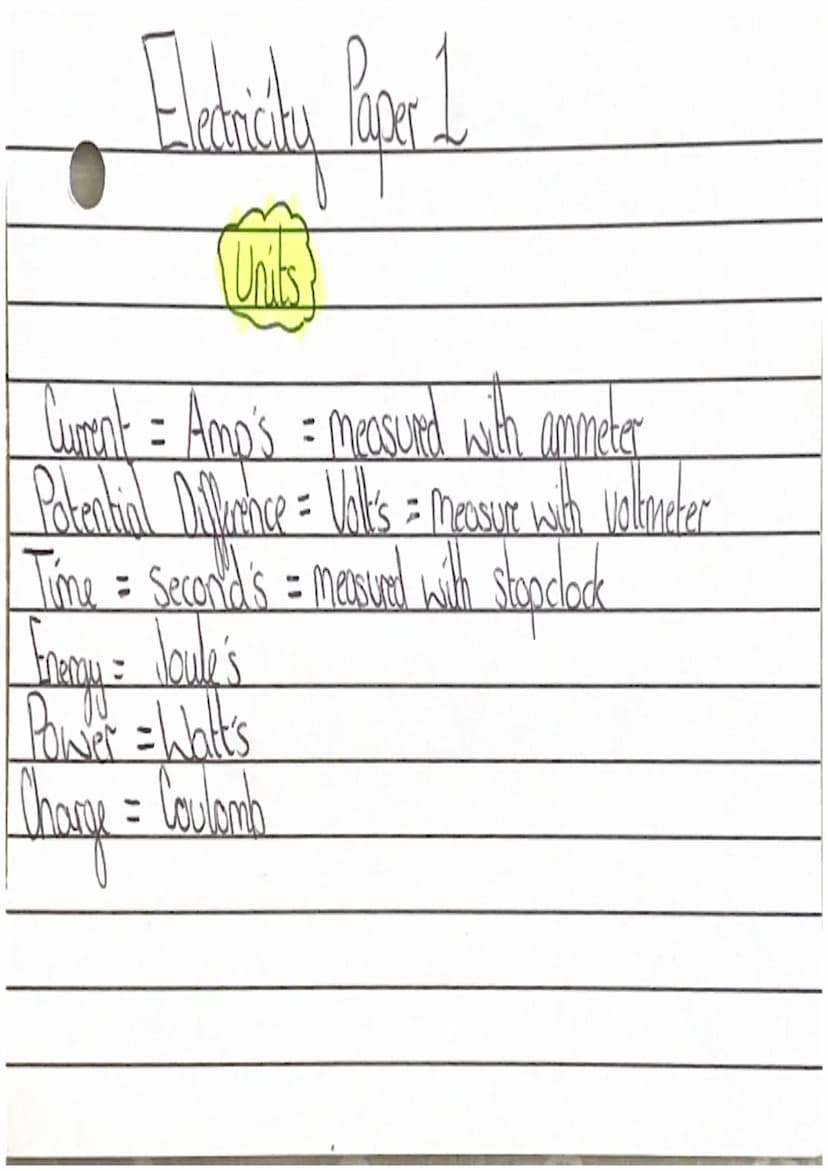 Electricity Paper 1
Units
Current = Amp's = measured with ammeter
Potential Difference = Volt's = measure with voltmeter
Time = Second's = measured with stopclock
Energy = Joule's
Power = Watt's
Charge = Coulomb